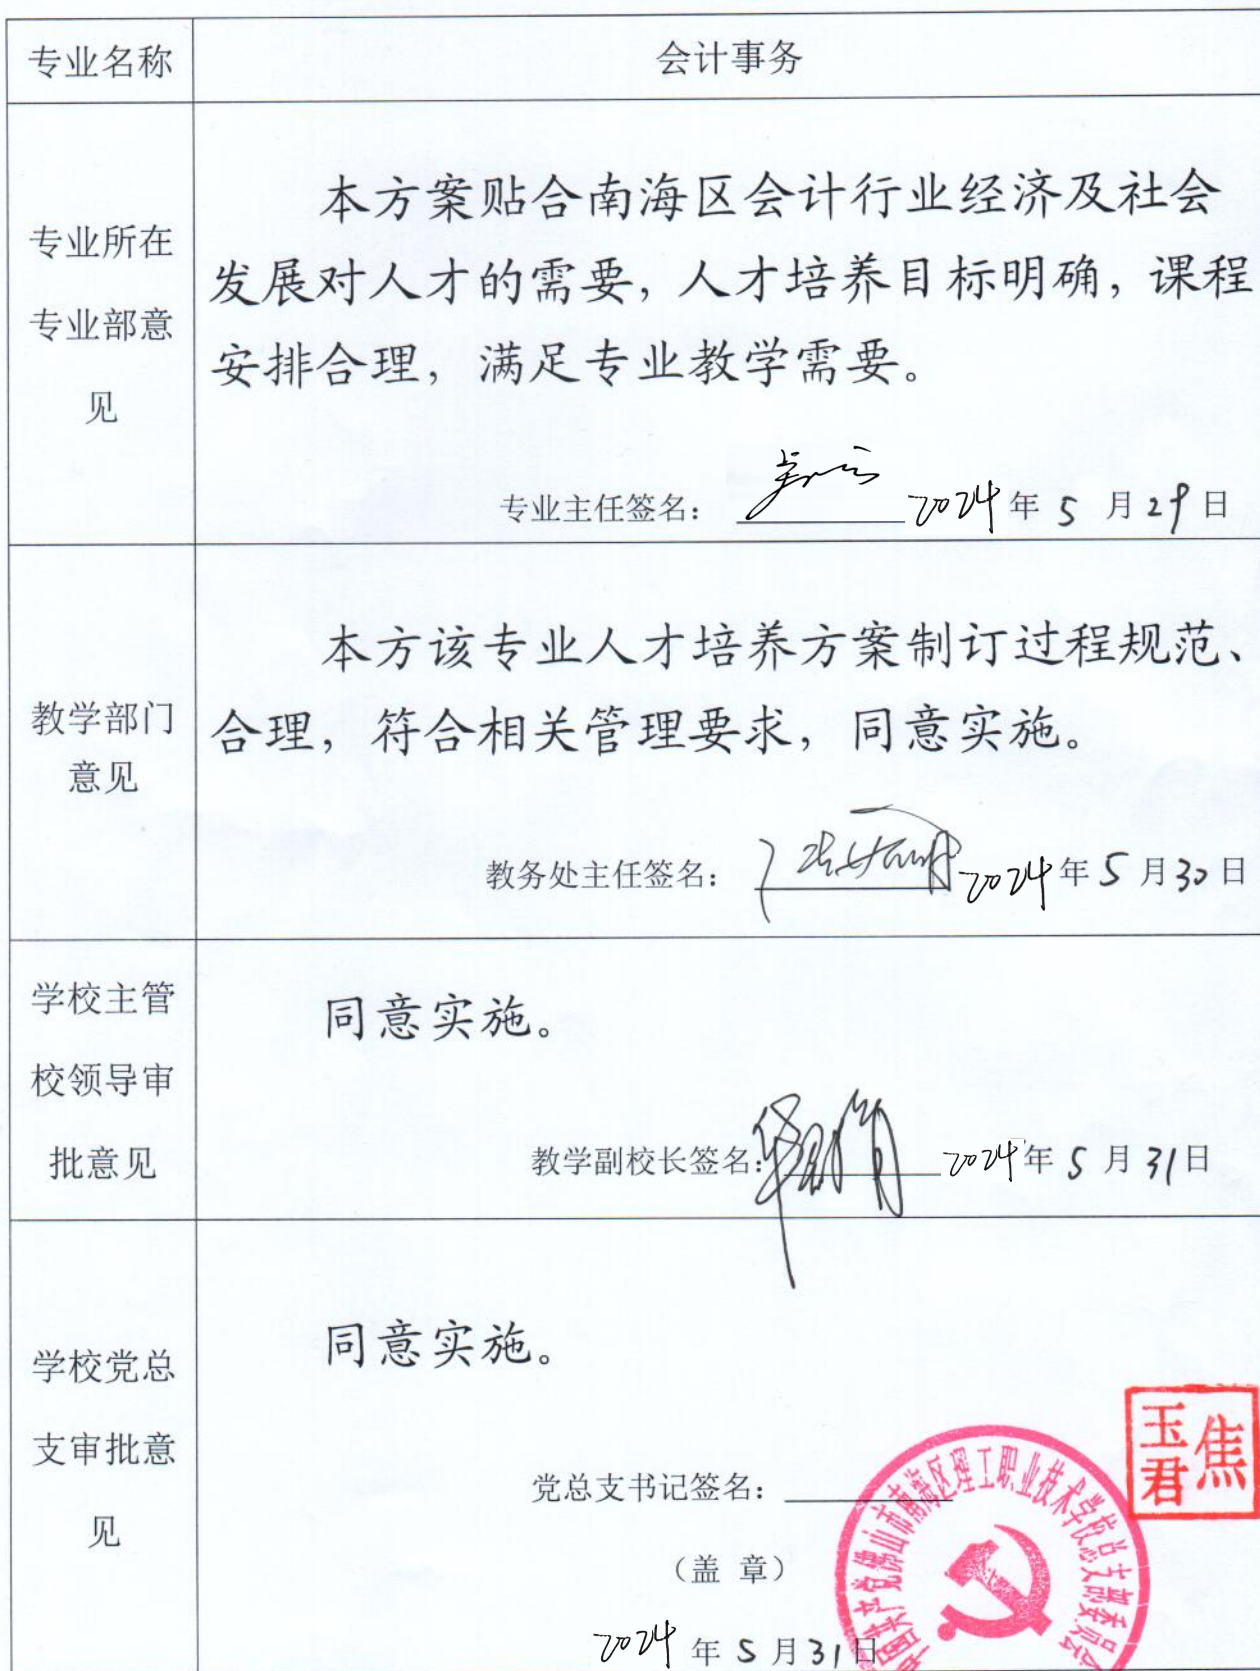 专业名称
会计事务
专业所在
专业部意
见
本方案贴合南海区会计行业经济及社会
发展对人才的需要，人才培养目标明确，课程
安排合理，满足专业教学需要。
专业主任签名： 2024年5月29日
教学部门
意见
本方该专业人才培养方案制订过程规范、
合理，符合相关管理要求，同意实施。
教务处主任签名： 2024年5月30日
学校主管
校领导审
批意见
同意实施。
教学副校长签名： 2024年5月31日
学校党总
支审批意
见
同意实施。
党总支书记签名：
焦玉君
（盖 章）
中国共产党佛山市南海区理工职业技术学校总支部委员会
2024年5月31日